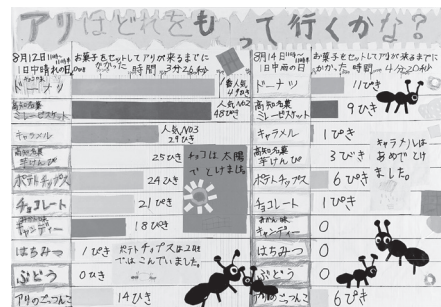 アリはどれをもって行くかな?
8月12日11時〜11時半
1日中晴れの日。
お菓子をセットしてアリが来るまでに
かかった時間 3分26秒
ドーナツ
人気
49ひき
高知名菓
ミレービスケット
人気No2
48ひき
キャラメル
人気NO3
29ひき
高知名菓
芋けんぴ
25ひき
ポテトチップス
24ひき
チョコレート
21ぴき
みかん味
キャンディー
18ぴき
チョコは太陽
でとけました。
はちみつ
1ぴき
ポテトチップスは2日
ではこんでいました。
ぶどう
0ひき
アリのごっつんこ
14ひき
8月14日11時〜
1日中雨の日
お菓子をセットしてアリが来るまでに
かかった時間 4分20秒
ドーナツ
11ぴき
高知名菓
ミレービスケット
9ひき
キャラメル
1ぴき
高知名菓
芋けんぴ
3びき
ポテトチップス
6ぴき
チョコレート
1ぴき
みかん味
キャンディー
0
はちみつ
0
ぶどう
0
アリのごっつんこ
6ぴき
キャラメルは
あめでとけ
ました。